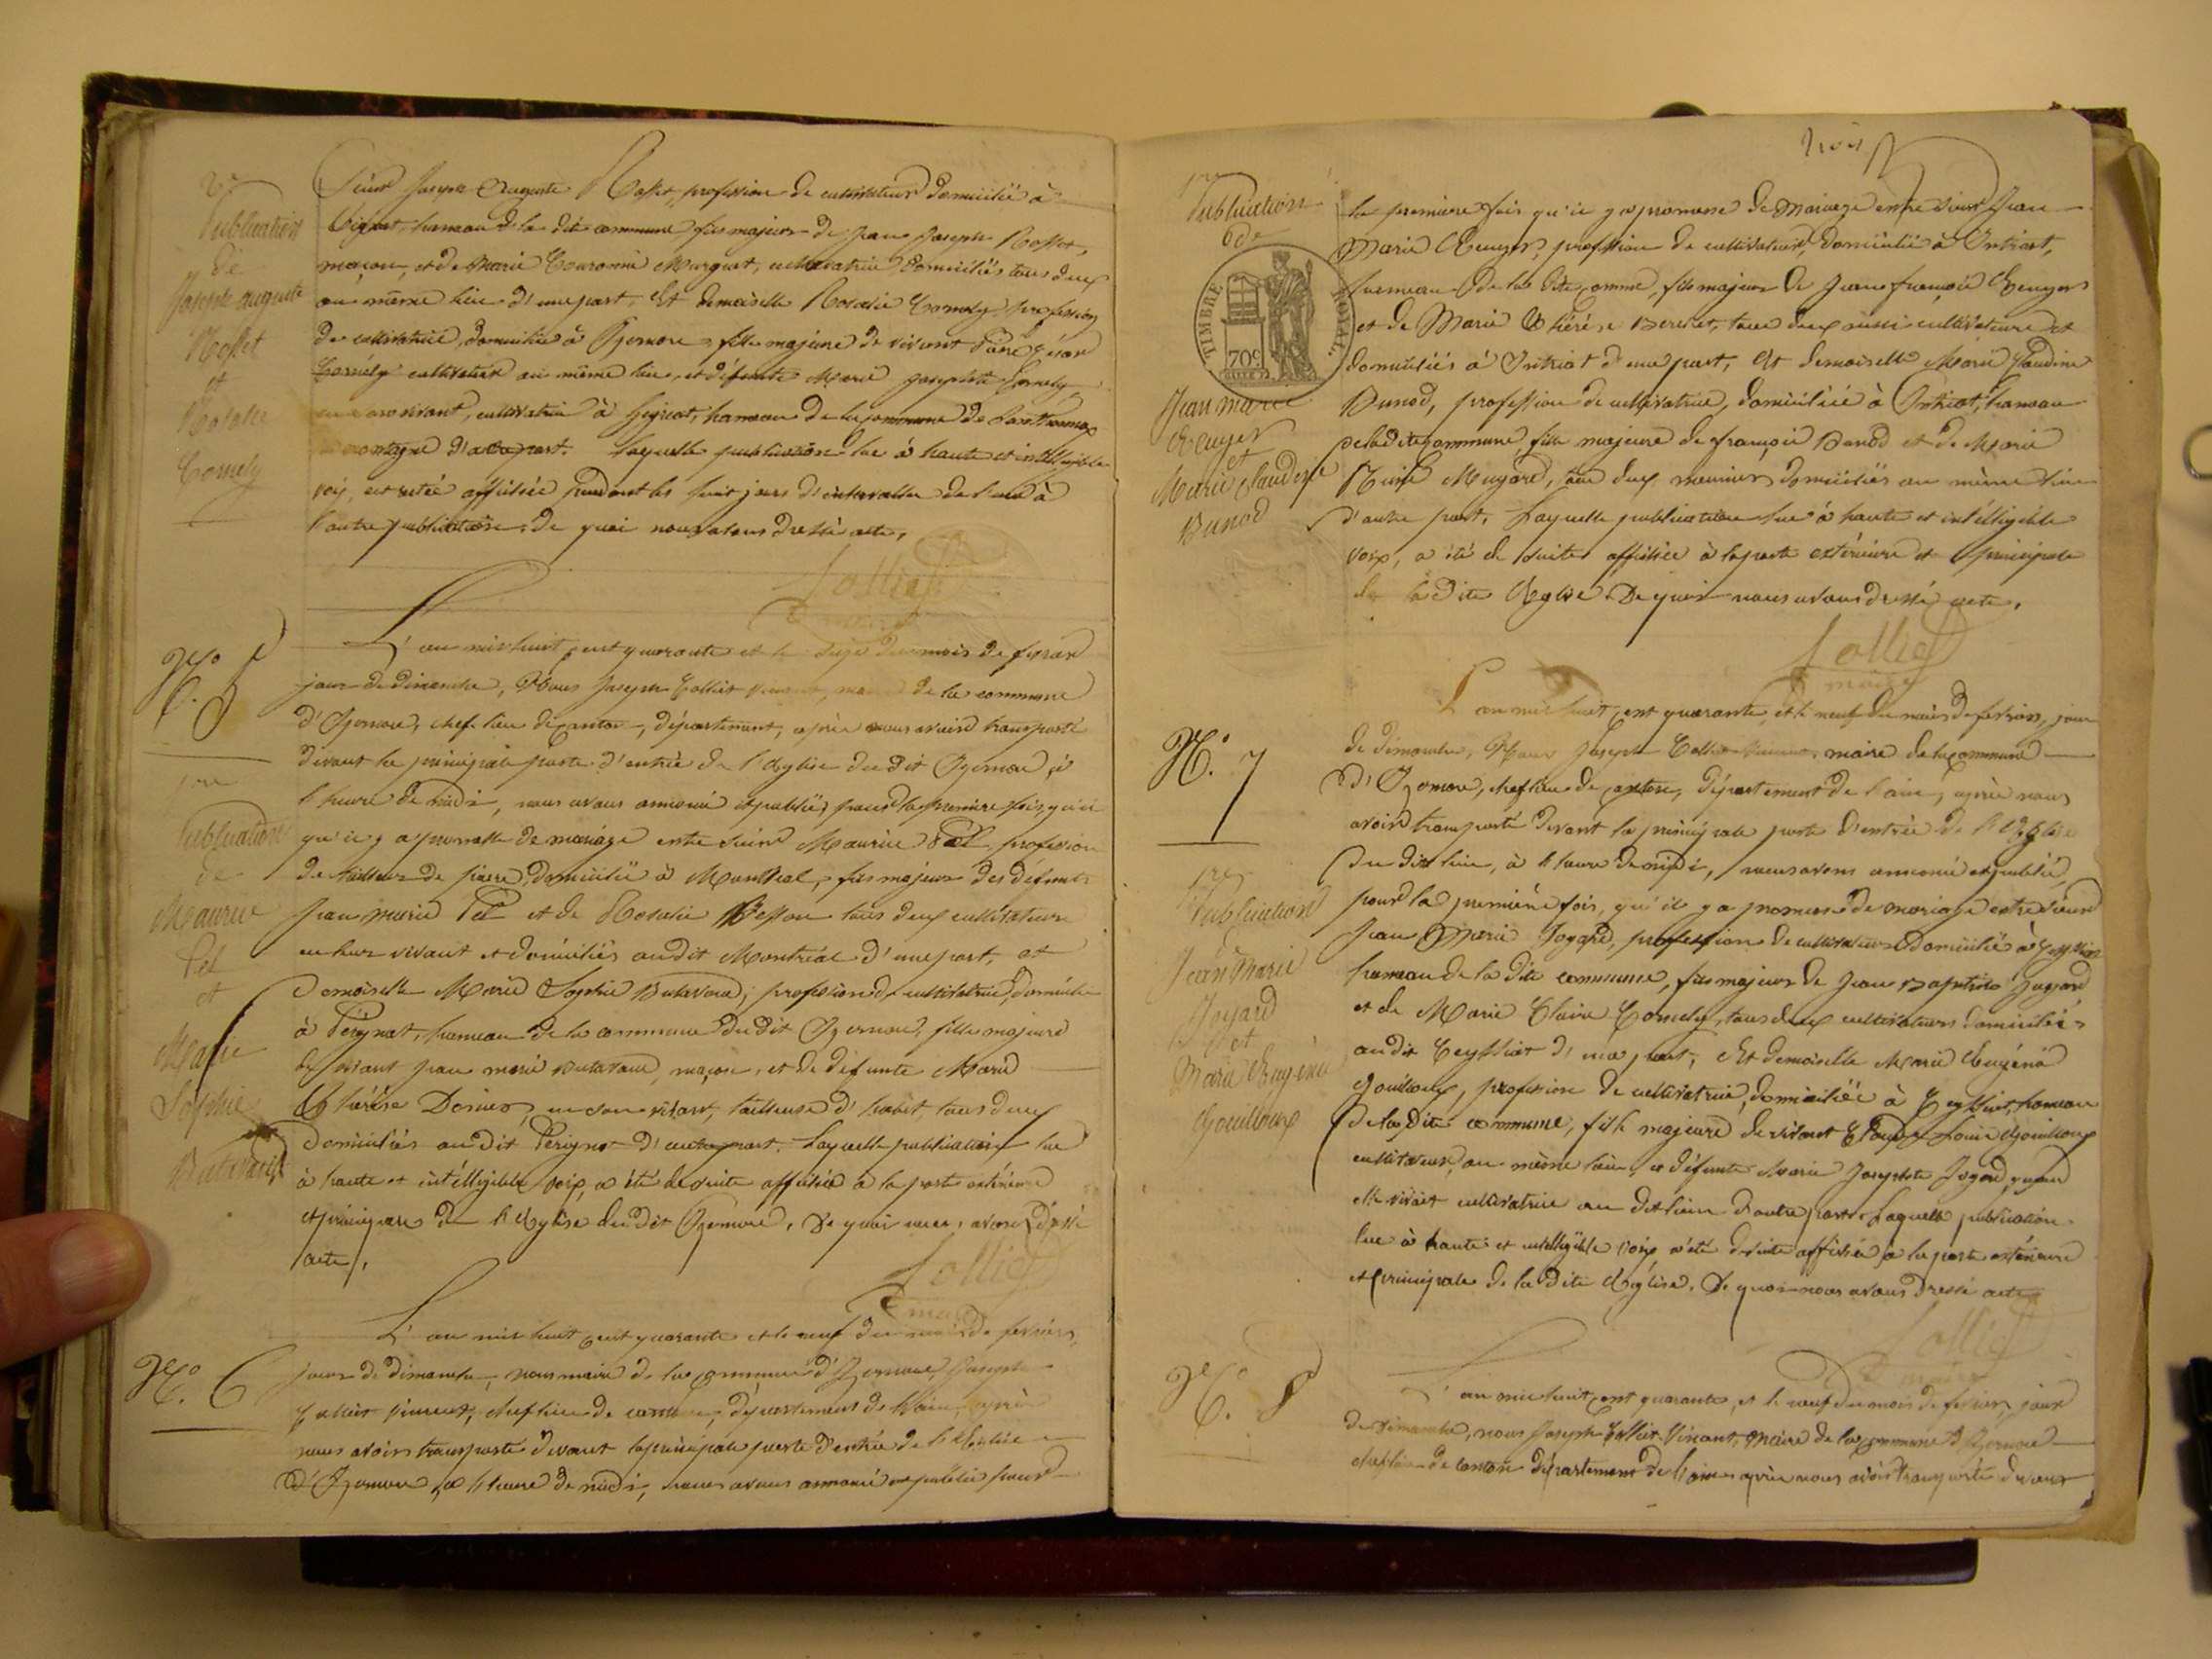 2e
Publication
de
Joseph auguste
Rosset
et
Rosalie
Comely
Sieur Joseph Auguste Rosset, profession de cultivateur domicilié à
hameau de la dite commune fils majeur de Jean Joseph Rosset,
maçon, et de Marie Couronne Marguet, cultivatrice domiciliés tous deux
au même lieu d'une part, Et demoiselle Rosalie Comely profession
de cultivatrice, domiciliée à Izernore fille majeure de vivant César
Comely cultivateur au même lieu, et défunte Marie Josephte Comely
en son vivant, cultivatrice à hameau de la commune de
montagne d'autre part. Laquelle publication lue à haute et intelligible
voix, est restée affichée pendant les huit jours d'intervalle de l'une à
l'autre publication. De quoi nous avons dressé acte.
Colliet
maire
No. 5
1re
Publication
de
Maurice
Pel
et
Marie
Sophie
Butavand
L'an mil huit cent quarante et le deux du mois de fevrier
jour de dimanche, Nous Joseph Colliet Vincent, maire de la commune
d'Izernore, chef-lieu de canton, département, après nous avoir transporté
devant la principale porte d'entrée de l'église du dit Izernore, à
l'heure de midi, nous avons annoncé et publié, pour la première fois, qu'il
qu'il y a promesse de mariage entre Sieur Maurice Pel profession
de tailleur de pierre, domicilié à Montréal, fils majeur des défunts
Jean marie Pel et de Rosalie Besson tous deux cultivateurs
en leur vivant et domiciliés audit Montréal d'une part, et
Demoiselle Marie Sophie Butavand, profession de cultivatrice, domiciliée
à Pérignat, hameau de la commune du dit Izernore, fille majeure
de vivant Jean marie Butavand, maçon, et de défunte Marie
Thérèse en son vivant, tailleuse d'habit, tous deux
domiciliés au dit Pérignat d'autre part. Laquelle publication lue
à haute et intélligible voix, a été de suite affichée à la porte extérieure
et principale de l'église du dit Izernore. De quoi nous avons dressé
acte.
Colliet
maire
No. 6
L'an mil huit cent quarante et le neuf du mois de fevrier,
jour de dimanche, nous maire de la commune d'Izernore, Joseph
Colliet Vincent, chef lieu de canton, département de l'ain, après
nous avoir transporté devant la principale porte d'entrée de l'église
d'Izernore, à l'heure de midi, nous avons annoncé et publié pour
trois
1re
Publication
de
TIMBRE ROYAL
70c
Jean marie
Reuger
et
Marie Claudine
Bunod
la premiere fois qu'il y a promesse de Mariage entre sieur Jean
Marie Reuger, profession de cultivateur, domicilié à Intriat,
hameau de la dite comme, fils majeur de Jean françois Reuger
et de Marie Thérèse tous deux aussi cultivateurs et
domiciliés à Intriat d'une part, Et demoiselle Marie Claudine
Bunod, profession de cultivatrice, domiciliée à Intriat, hameau
de la dite commune, fille majeure de françois Bunod et de Marie
Muyard, tous deux meuniers domiciliés au même lieu
d'autre part. Laquelle publication lue à haute et intélligible
voix, a été de suite affichée à la porte extérieure et principale
de la dite Eglise. De quoi nous avons dressé acte.
Colliet
maire
No. 7
1re
Publication
Jean Marie
Joyard
et
Marie Eugénie
Gouilloux
L'an mil huit cent quarante, et le neuf du mois de fevrier, jour
de dimanche, Nous Joseph Colliet Vincent, maire de la commune
d'Izernore, chef lieu de canton, département de l'ain, après nous
avoir transporté devant la principale porte d'entrée de l'Eglise
du dit lieu, à l'heure de midi, nous avons annoncé et publié,
pour la première fois, qu'il y a promesse de mariage entre sieur
Jean Marie Joyard, profession de cultivateur domicilié à Ceyssiat
hameau de la dite commune, fils majeur de Jean Baptiste Joyard
et de Marie Claire Comely, tous deux cultivateurs domiciliés
au dit Ceyssiat d'une part, Et demoiselle Marie Eugénie
Gouilloux, profession de cultivatrice, domiciliée à Ceyssiat, hameau
de la dite commune, fille majeure de vivant Claude Louis Gouilloux
cultivateur, au même lieu, et défunte Marie Josephte Joyard, quand
elle vivait cultivatrice au dit lieu d'autre part. Laquelle publication
lue à haute et intelligible voix a été de suite affichée à la porte extérieure
et principale de la dite Eglise. De quoi nous avons dressé acte
Colliet
maire
No. 8
L'an mil huit cent quarante, et le neuf du mois de fevrier, jour
de dimanche, nous Joseph Colliet Vincent, Maire de la commune d'Izernore
chef lieu de canton département de l'ain, après nous avoir transporté devant